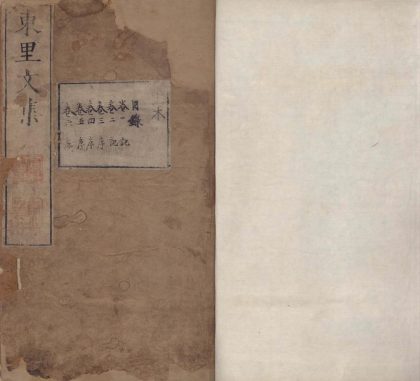 東里文集
木
目錄
卷一 記
卷二 記
卷三 序
卷四 序
卷五 序
卷六 序